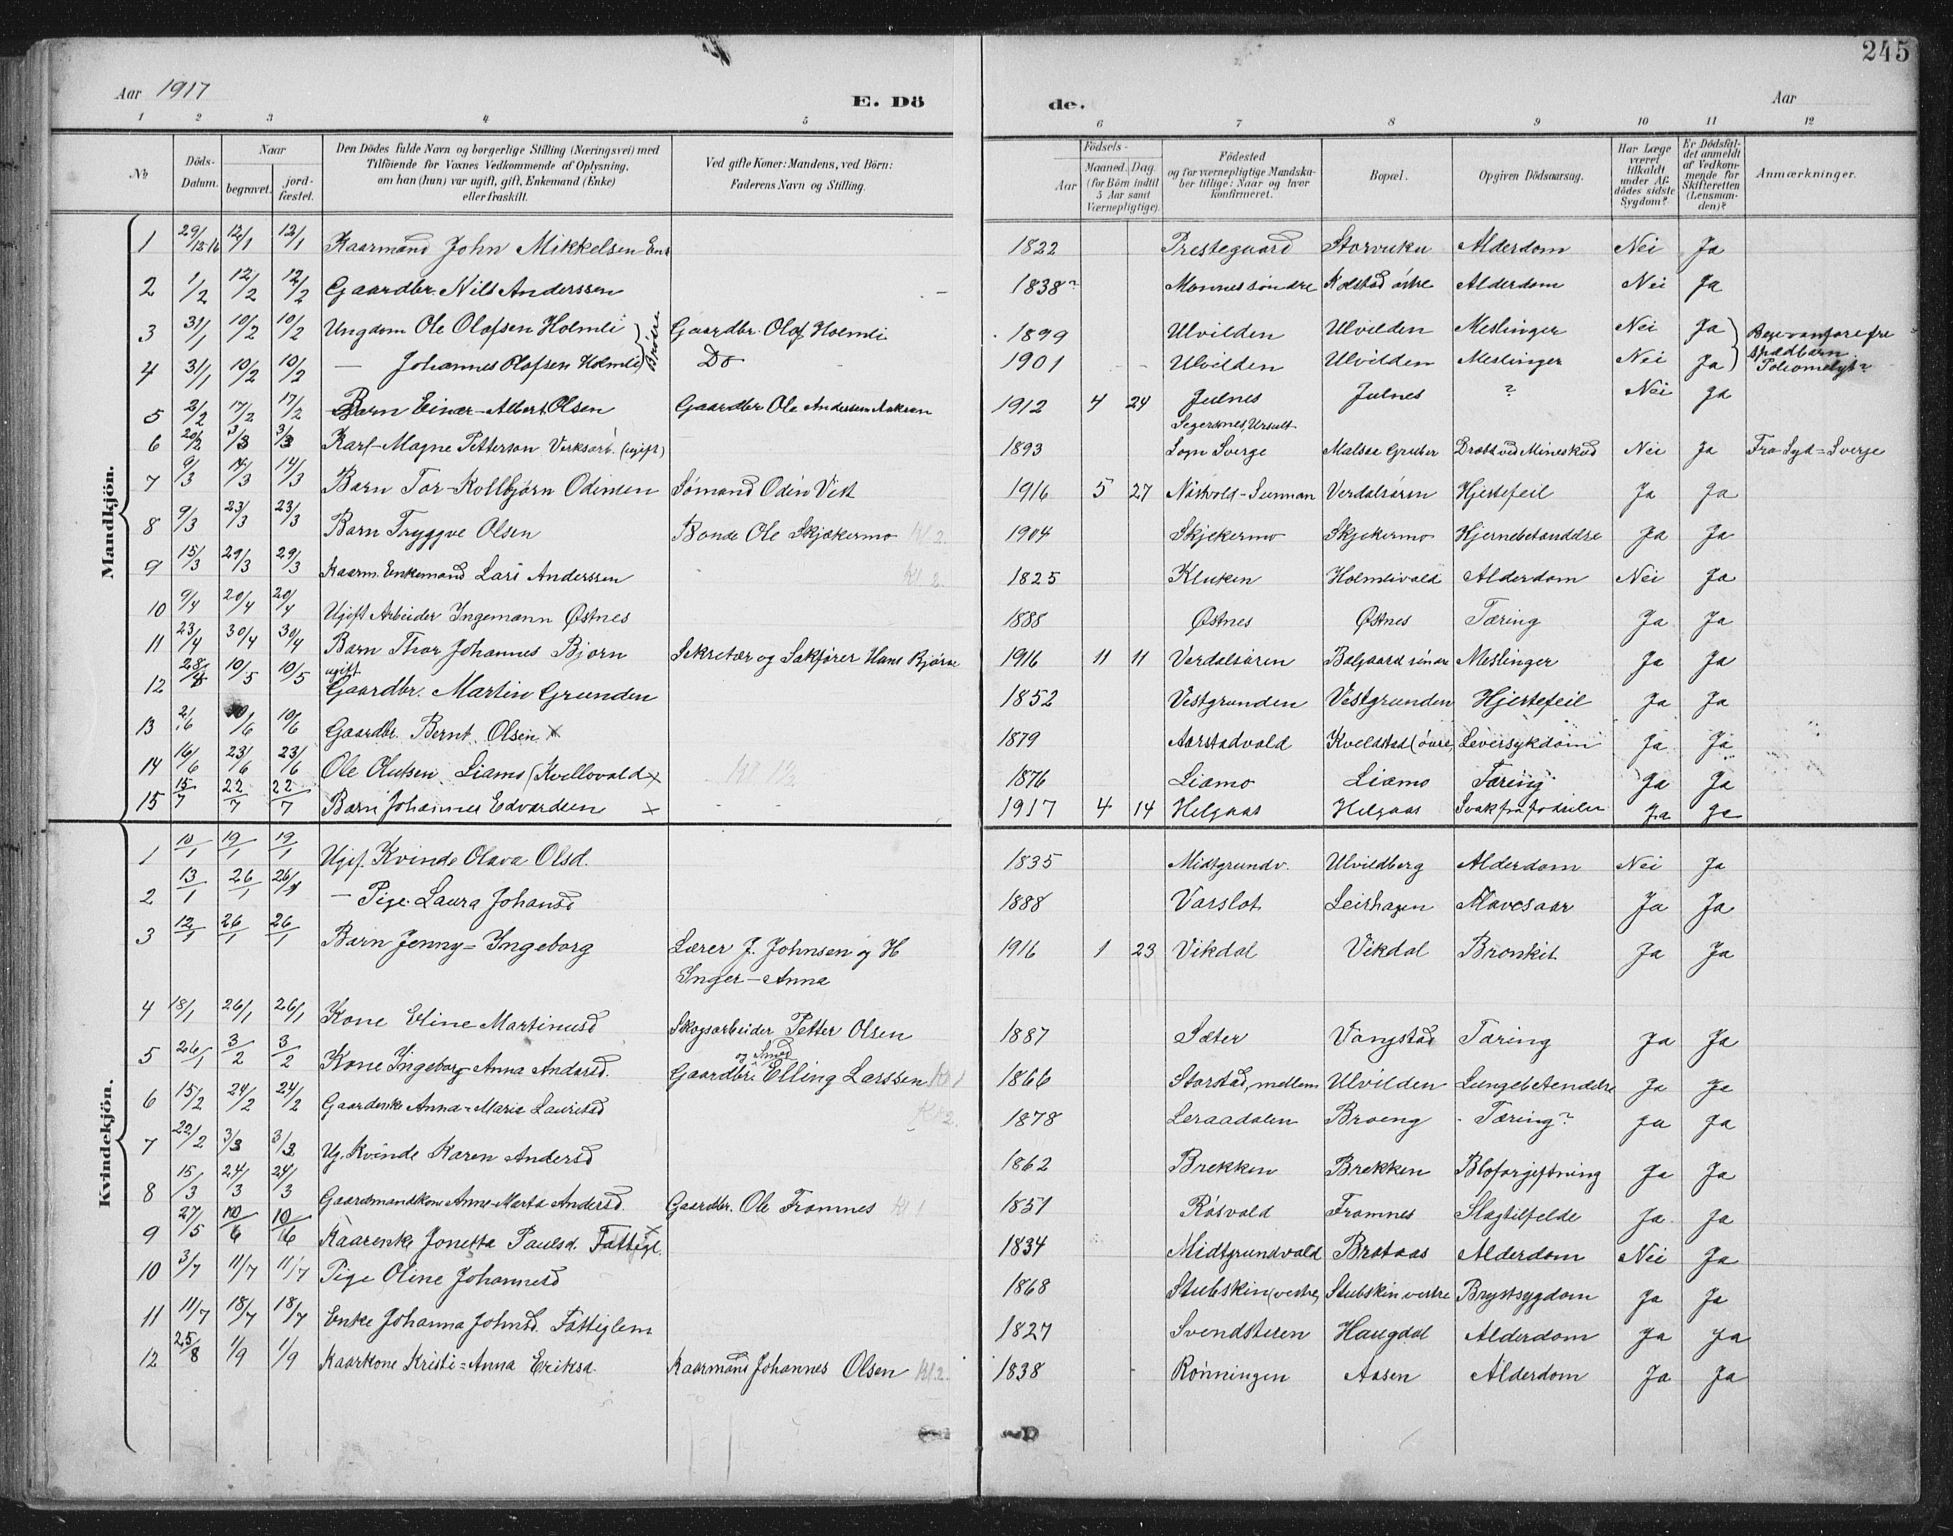 245
Aar 1917 E. Dö de. Aar
1 2 3 4 5 6 7 8 9 10 11 12
No. Döds-Datum. Naar begravet. jordfæstet. Den Dödes fulde Navn og borgerlige Stilling (Næringsvei) med Tilföiende for Voxnes Vedkommende af Oplysning, om han (hun) var ugift, gift, Enkemand (Enke) eller fraskilt. Ved gifte Koner: Mandens, ved Börn: Faderens Navn og Stilling. Födsels- Aar Maaned. Dag. (for Börn indtil 5 Aar samt Værnepligtige). Födested og for værnepligtige Mandskaber tillige: Naar og hvor konfirmeret. Bopæl. Opgiven Dödsaarsag. Har Læge været tilkaldt under Afdödes sidste Sygdom? Er Dödsfaldet anmeldt af Vedkommende for Skifteretten (Lensmanden)? Anmærkninger.
Mandkjön.
1 29/12 16 12/1 12/1 Kaarmand John Mikkelsen Enk 1822 Prestegaard Storvuku Alderdom Nei Ja
2 1/2 12/2 12/2 Gaardbr. Nils Anderssen 1838? Monnes söndre Kolstad östre Alderdom Nei Ja
3 31/1 10/2 10/2 Ungdom Ole Olafsen Holmli Brödre Gaardbr. Olof Holmli 1899 Ulvilden Ulvilden Meslinger Nei Ja
4 31/1 10/2 10/2 — Johannes Olafsen Holmli Do 1901 Ulvilden Ulvilden Meslinger Nei Ja spædbarn Poliomelyt?
5 2/2 17/2 17/2 Barn Einar-Albert Olsen Gaardbr Ole Anderssen 1912 4 24 Julnes Julnes ? Nei Ja
6 20/2 3/3 3/3 Karl-Magne Petterson Verksarb. (ugift) 1893 Sogn Sverge Malsaa Gruber Dræbt ved Mineskud Nei Ja Fra Syd=Sverje
7 9/3 14/3 14/3 Barn Tor-Kolbjörn Odinsen Sömand Odin Vist 1916 5 27 Verdalsören Hjertefeil Ja Ja
8 9/3 23/3 23/3 Barn Tryggve Olsen Bonde Ole Skjækermo Kl 2. 1904 Skjekermo Skjekermo Hjernebetændelse Ja Ja
9 15/3 29/3 29/3 Kaarm. Enkemand Lars Anderssen Kl 2. 1825 Kluken Holmlivald Alderdom Nei Ja
10 9/4 20/4 20/4 Ugift Arbeider Ingemann Østnes 1888 Østnes Østnes Tæring Ja Ja
11 23/4 30/4 30/4 Barn Thor Johannes Bjorn Sekretær og Sakfører Hans Bjørn 1916 11 11 Verdalsören Meslinger Ja Ja
12 28/4 10/5 10/5 ugift Gaardbr. Martin Grunden 1852 Vestgrunden Vestgrunden Hjertefeil Ja Ja
13 2/6 10/6 10/6 Gaardbr. Bernt Olsen x 1879 Aarstadvald Kvelstad (övre Leversykdom Ja Ja
14 16/6 23/6 23/6 Ole Olutsen Liamo (Kvellovald x 1876 Liamo Liamo Tæring Ja Ja
15 15/7 22/7 22/7 Barn Johannes Edvardsen x 1917 4 14 Helgaas Helgaas Svak fra födselen Ja Ja
Kvindekjön.
1 10/1 19/1 19/1 Ugif. Kvinde Olava Olsd. 1835 Midtgrundv. Ulvildberg Alderdom Nei Ja
2 13/1 26/1 26/1 — Pige Laura Johansd 1888 Varslot Leirhagen Mavesaar Ja Ja
3 12/1 26/1 26/1 Barn Jenny=Ingeborg Lærer J. Johnsen og H 1916 1 23 Vikdal Vikdal Bronkit Ja Ja
Inger-Anna
4 18/1 26/1 26/1 Kone Eline Martinusd Skogsarbeider Petter Olsen 1887 Sæter Vangstad Tæring Ja Ja
5 26/1 3/2 3/2 Kone Ingeborg-Anna Andersd. Gaardbr. og Smed Elling Larssen Kl 1 1866 Storstad, mellem Ulvilden Lungebetændelse Ja Ja
6 15/2 24/2 24/2 Gaardenke Anna=Maria Lauritsd Kl 2. 1878 Leraadalen Broeng Tæring? Ja Ja
7 22/2 3/3 3/3 Ug. Kvinde Karen Andersd 1862 Brekken Brekken Bloforgiftning Ja Ja
8 15/3 24/3 24/3 Gaardmandkone Anne-Marta Andersd. Gaardbr. Ole Framnes Kl 1 1851 Rösvald Framnes Slagtilfelde Ja Ja
9 27/5 10/6 10/6 Kaarenke Jonetta Paulsd. Fattigl. x 1834 Midtgrundvald Brataas Alderdom Nei Ja
10 3/7 11/7 11/7 Pige Oline Johannesd 1868 Stubskin (vestre) Stubskin vestre Brystsygdom Ja Ja
11 11/7 18/7 18/7 Enke Johanna Johnsd. Fattiglem 1827 Svendsteren Haugdal Alderdom Ja Ja
12 25/8 1/9 1/9 Kaarkone Kristi=Anna Eriksd. Kaarmand Johannes Olsen Kl 2. 1838 Rönningen Aasen Alderdom Ja Ja